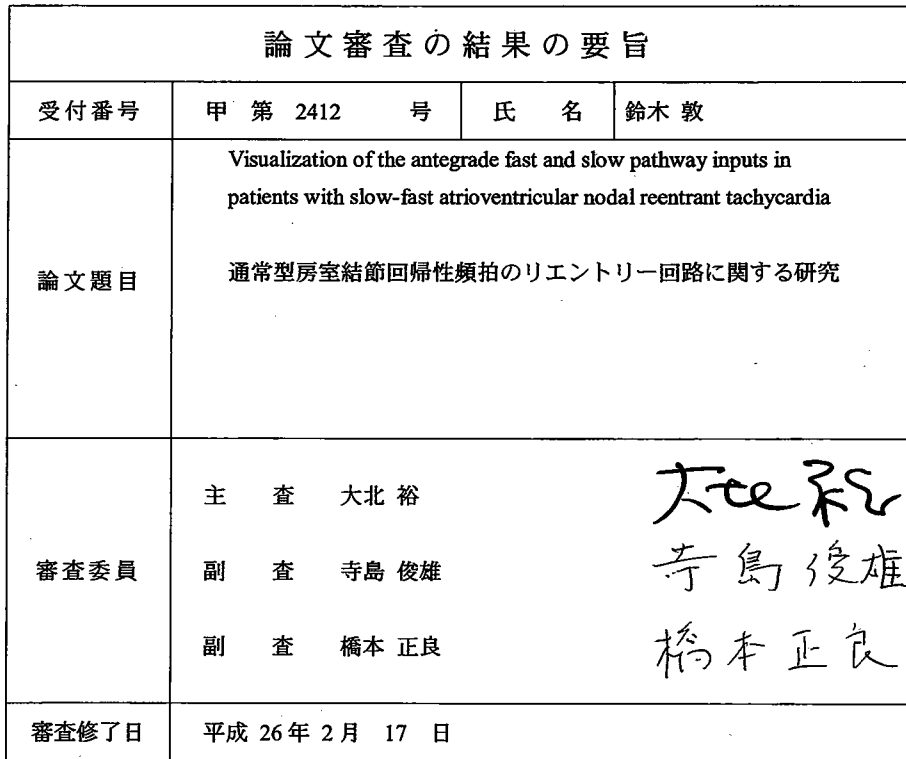 論文審査の結果の要旨
受付番号 甲 第 2412 号 氏 名 鈴木 敦
論文題目
Visualization of the antegrade fast and slow pathway inputs in
patients with slow-fast atrioventricular nodal reentrant tachycardia
通常型房室結節回帰性頻拍のリエントリー回路に関する研究
審査委員
主 査 大北 裕 大北 裕
副 査 寺島 俊雄 寺島俊雄
副 査 橋本 正良 橋本正良
審査修了日 平成 26 年 2 月 17 日